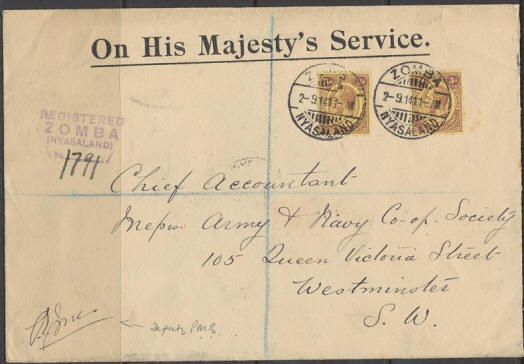 On His Majesty's Service.
ZOMBA
2-9.14 11-AM
NYASALAND
ZOMBA
2-9.14 11-AM
NYASALAND
REGISTERED
ZOMBA
(NYASALAND)
1791
Chief Accountant
Messrs. Army & Navy Co-op. Society
105 Queen Victoria Street
Westminster
S. W.
Deputy P.M.G.